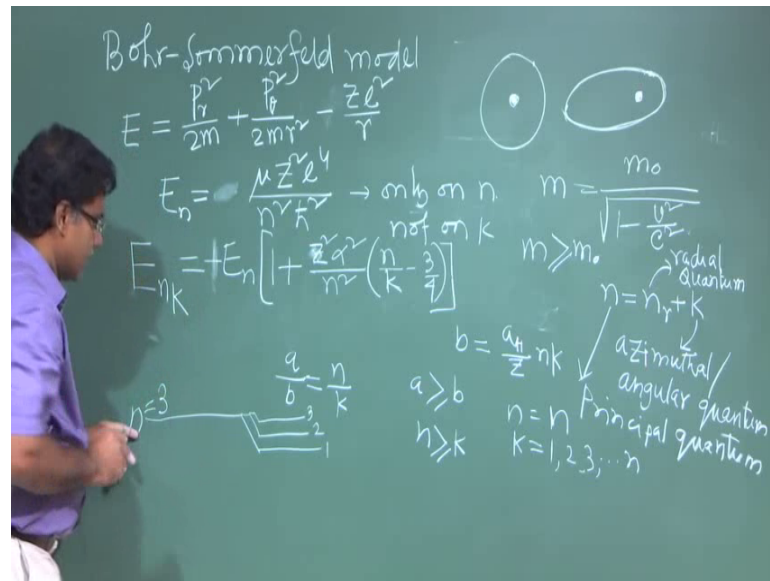 Bohr-Sommerfeld model
E = Pr²/2m + Pφ²/2mr² - Ze²/r
En = - μZ²e⁴/n²ħ² → only on n
not on k
Enk = +En[1 + Z²α²/n² (n/k - 3/4)]
m = m₀/√(1 - v²/c²)
m ≥ m₀
n = nr + k
radial
Quantum
azimuthal/
angular quantum
Principal quantum
b = aH/Z nk
a/b = n/k
a ≥ b
n ≥ k
n = n
k = 1, 2, 3, ... n
n=3
3
2
1